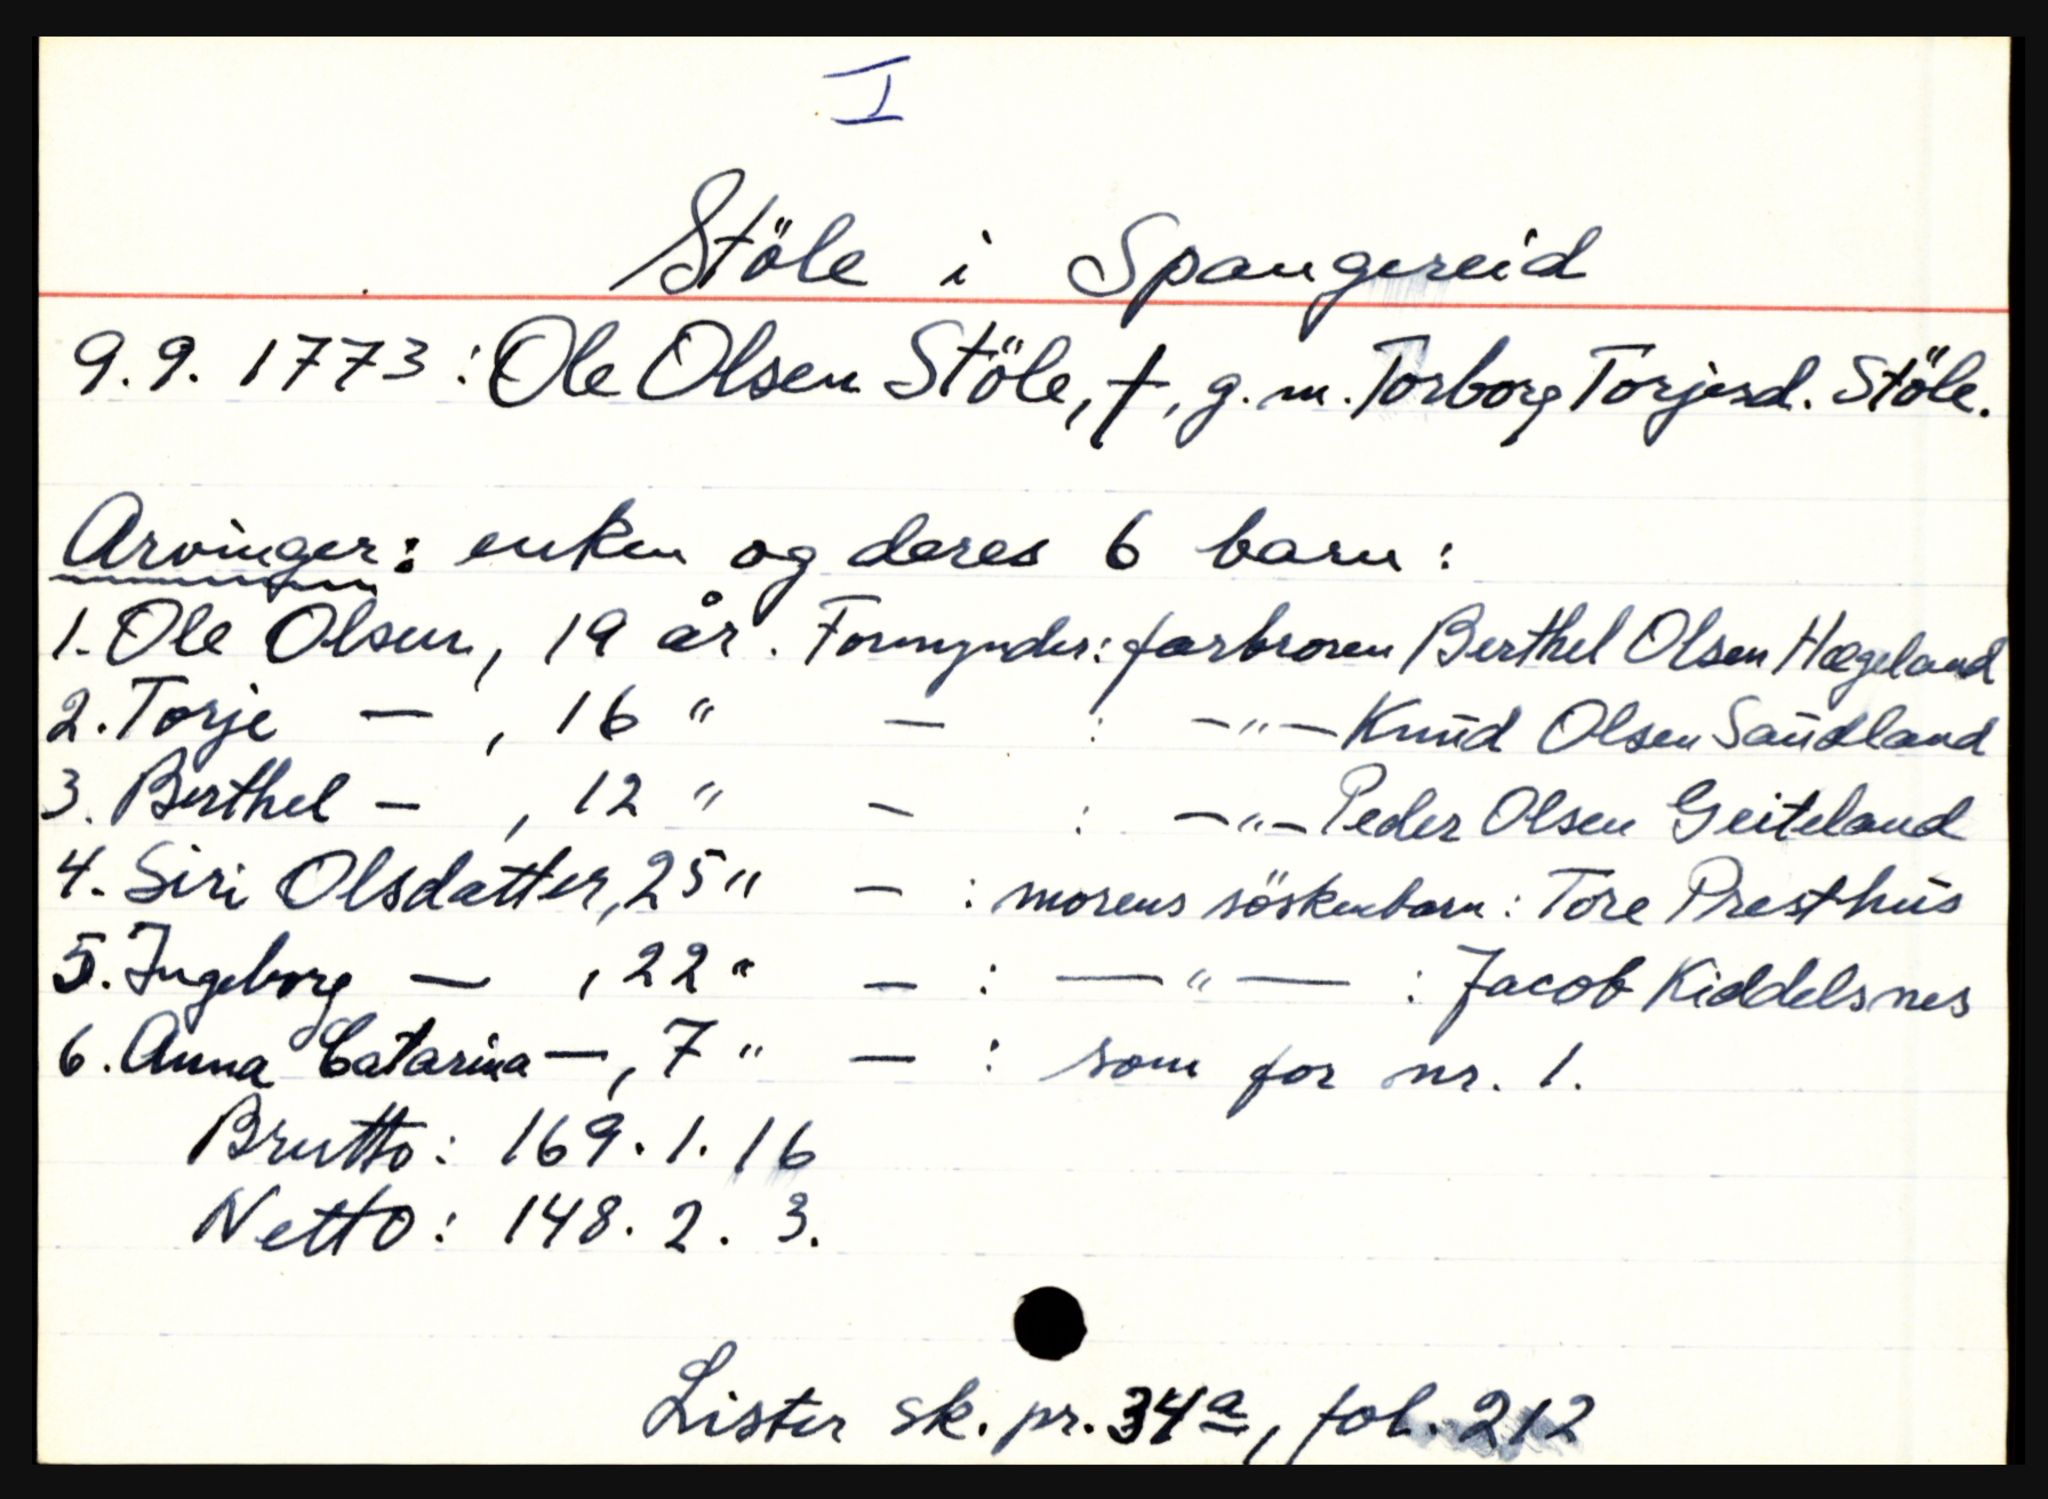 I
Stöle i Spangereid
9.9. 1773: Ole Olsen Stöle, †, g.m. Torborg Torjesd. Stöle.
Arvinger: enken og deres 6 barn:
1. Ole Olsen, 19 år. Formynder: farbroren Berthel Olsen Hægeland
2. Torje — , 16 " — : —"— Knud Olsen Saudland
3. Berthel — , 12 " — : —"— Peder Olsen Geiteland
4. Siri Olsdatter, 25 " — : morens söskenbarn: Tore Presthus
5. Ingeborg — , 22 " — : —"— : Jacob Kiddelsnes
6. Anna Catarina — , 7 " — : som for nr. 1.
Brutto: 169. 1. 16
Netto: 148. 2. 3.
Lister sk. pr. 34a, fol. 212